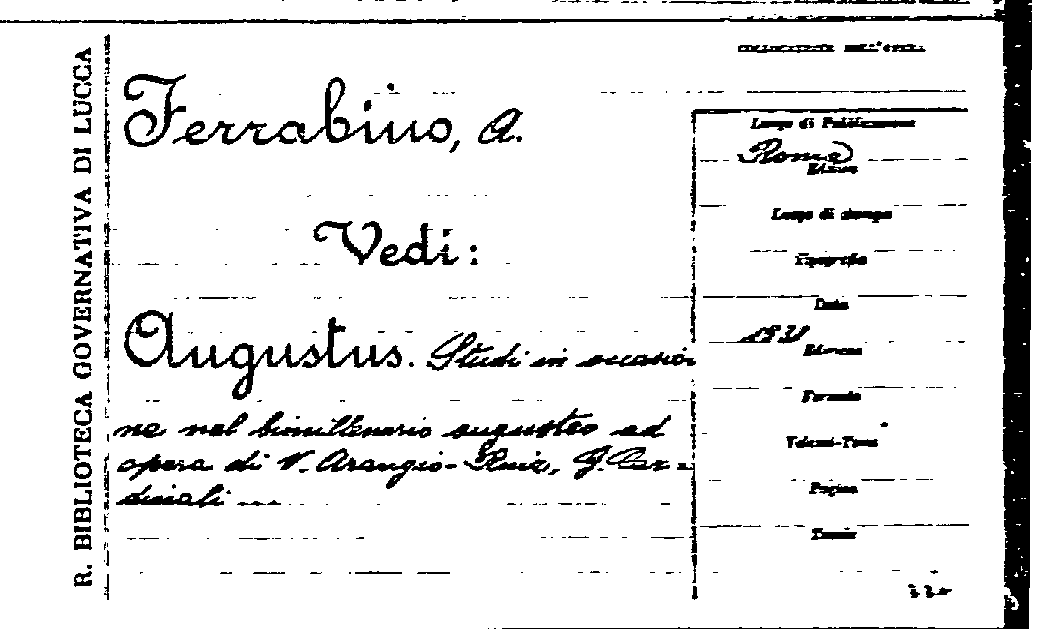 R. BIBLIOTECA GOVERNATIVA DI LUCCA
Ferrabino, A.
Vedi:
Augustus. Studi in occasio-
ne nel bimillenario augusteo ad
opera di V. Arangio-Ruiz, G. Car-
dinali ...
COLLOCAZIONE DELL'OPERA
Luogo di Pubblicazione
Roma
Editore
Luogo di stampa
Tipografia
Data
Edizione
Formato
Volumi-Tomi
Pagine
Tavole